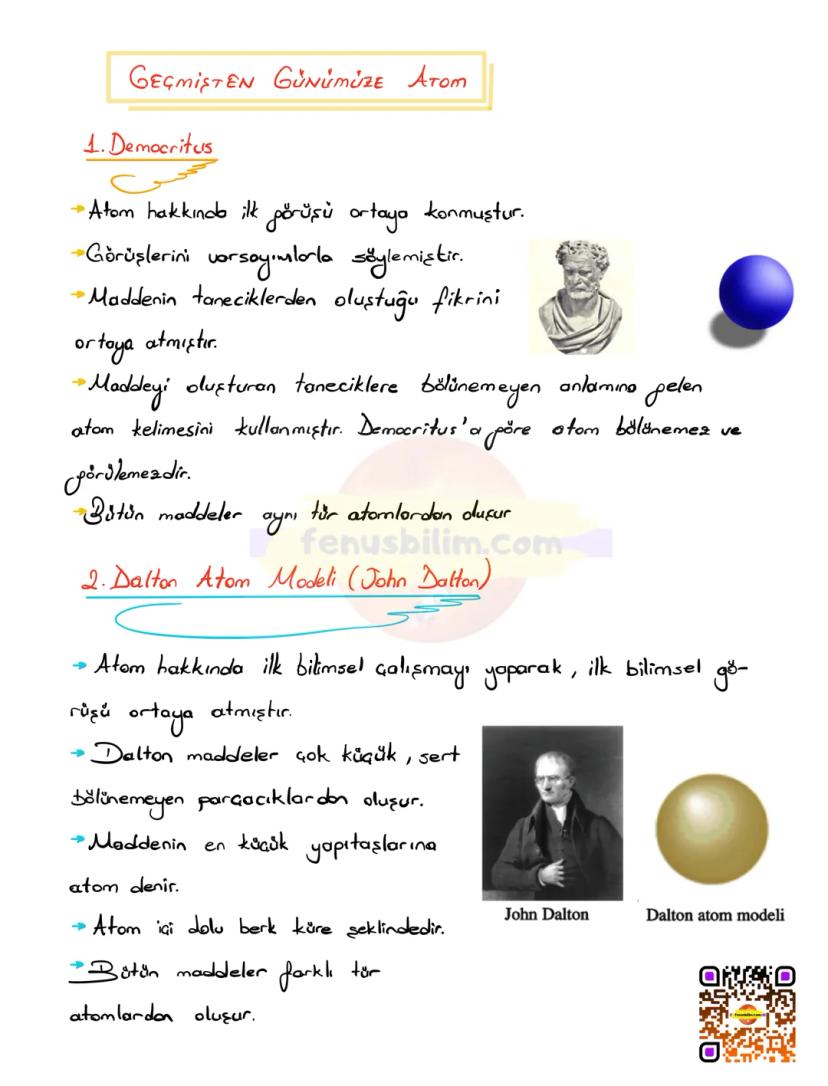 GEÇMİŞTEN GÜNÜMÜZE ATOM
1. Democritus
→ Atom hakkında ilk görüşü ortaya konmuştur.
→ Görüşlerini varsayımlarla söylemiştir.
→ Maddenin taneciklerden oluştuğu fikrini
ortaya atmıştır.
→ Maddeyi oluşturan taneciklere bölünemeyen anlamına gelen
atom kelimesini kullanmıştır. Democritus'a göre atom bölünemez ve
görülemezdir.
→ Bütün maddeler aynı tür atomlardan oluşur
fenusbilim.com
2. Dalton Atom Modeli (John Dalton)
→ Atom hakkında ilk bilimsel çalışmayı yaparak, ilk bilimsel gö-
rüşü ortaya atmıştır.
→ Dalton maddeler çok küçük, sert
bölünemeyen parçacıklardan oluşur.
→ Maddenin en küçük yapıtaşlarına
atom denir.
→ Atom içi dolu berk küre şeklindedir.
→ Bütün maddeler farklı tür
atomlardan oluşur.
John Dalton
Dalton atom modeli